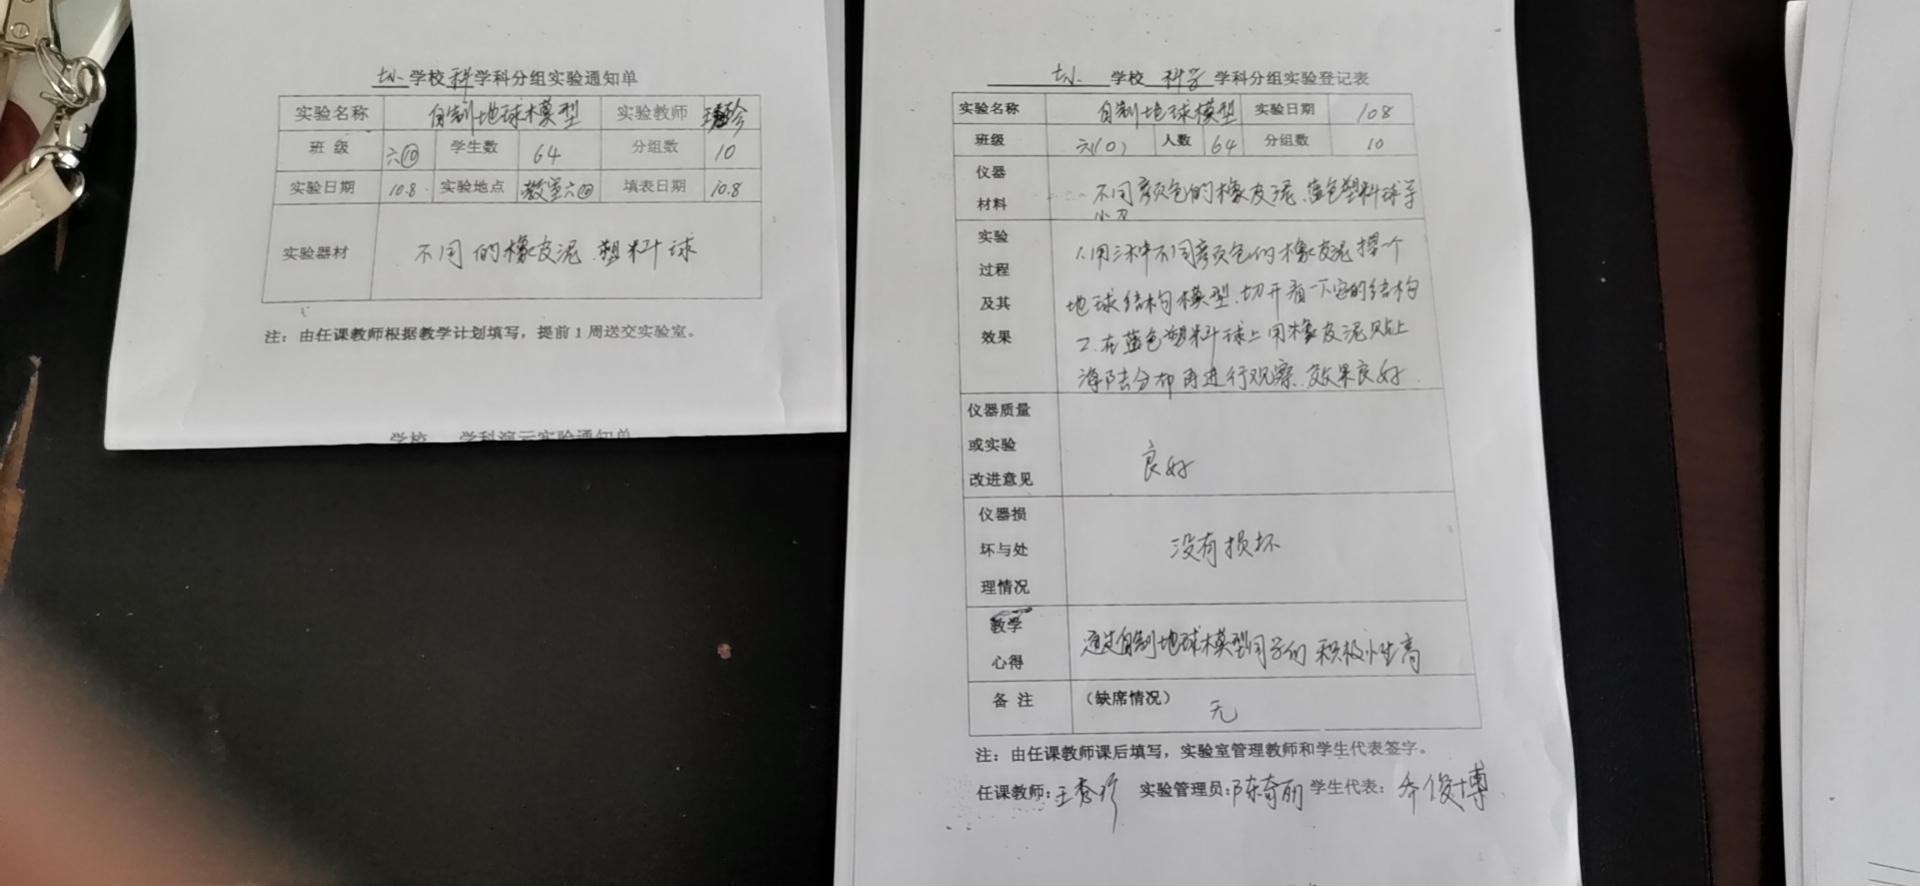 学校科学科分组实验通知单
实验名称 自制地球模型 实验教师
班 级 六⑩ 学生数 64 分组数 10
实验日期 10.8. 实验地点 教室六⑩ 填表日期 10.8
实验器材 不同的橡皮泥.塑料球
注：由任课教师根据教学计划填写，提前1周送交实验室。
学校 学科演示实验通知单
学校 科学 学科分组实验登记表
实验名称 自制地球模型 实验日期 108
班级 六(10) 人数 64 分组数 10
仪器
材料
不同颜色的橡皮泥.蓝色塑料球等
小刀
实验
过程
及其
效果
1.用三种不同颜色的橡皮泥捏一个
地球结构模型.切开看一下它的结构
2.在蓝色塑料球上用橡皮泥贴上
海陆分布再进行观察.效果良好.
仪器质量
或实验
改进意见
良好
仪器损
坏与处
理情况
没有损坏
教学
心得
通过自制地球模型同学们积极性高
备 注 （缺席情况） 无
注：由任课教师课后填写，实验室管理教师和学生代表签字。
任课教师:王秀珍 实验管理员:陈奇丽 学生代表: 乔俊博